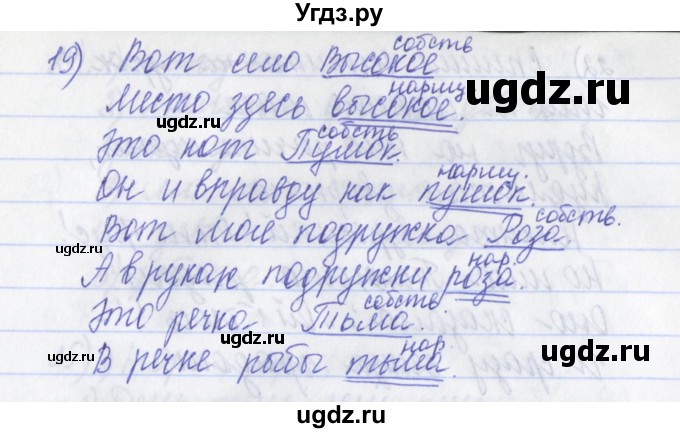 Угдз.ру
19) Вот село Высокое собств
Место здесь высокое. нариц
ugdz.ru
ugdz.ru
Это кот Пушок. собств
Он и вправду как пушок. нариц.
ugdz.ru
Вот моя подружка Роза собств.
ugdz.ru
А в руках подружки роза. нар.
ugdz.ru
Это речка Тьма. собств
ugdz.ru
В речке рыбы тьма. нар.
ugdz.ru
ugdz.ru